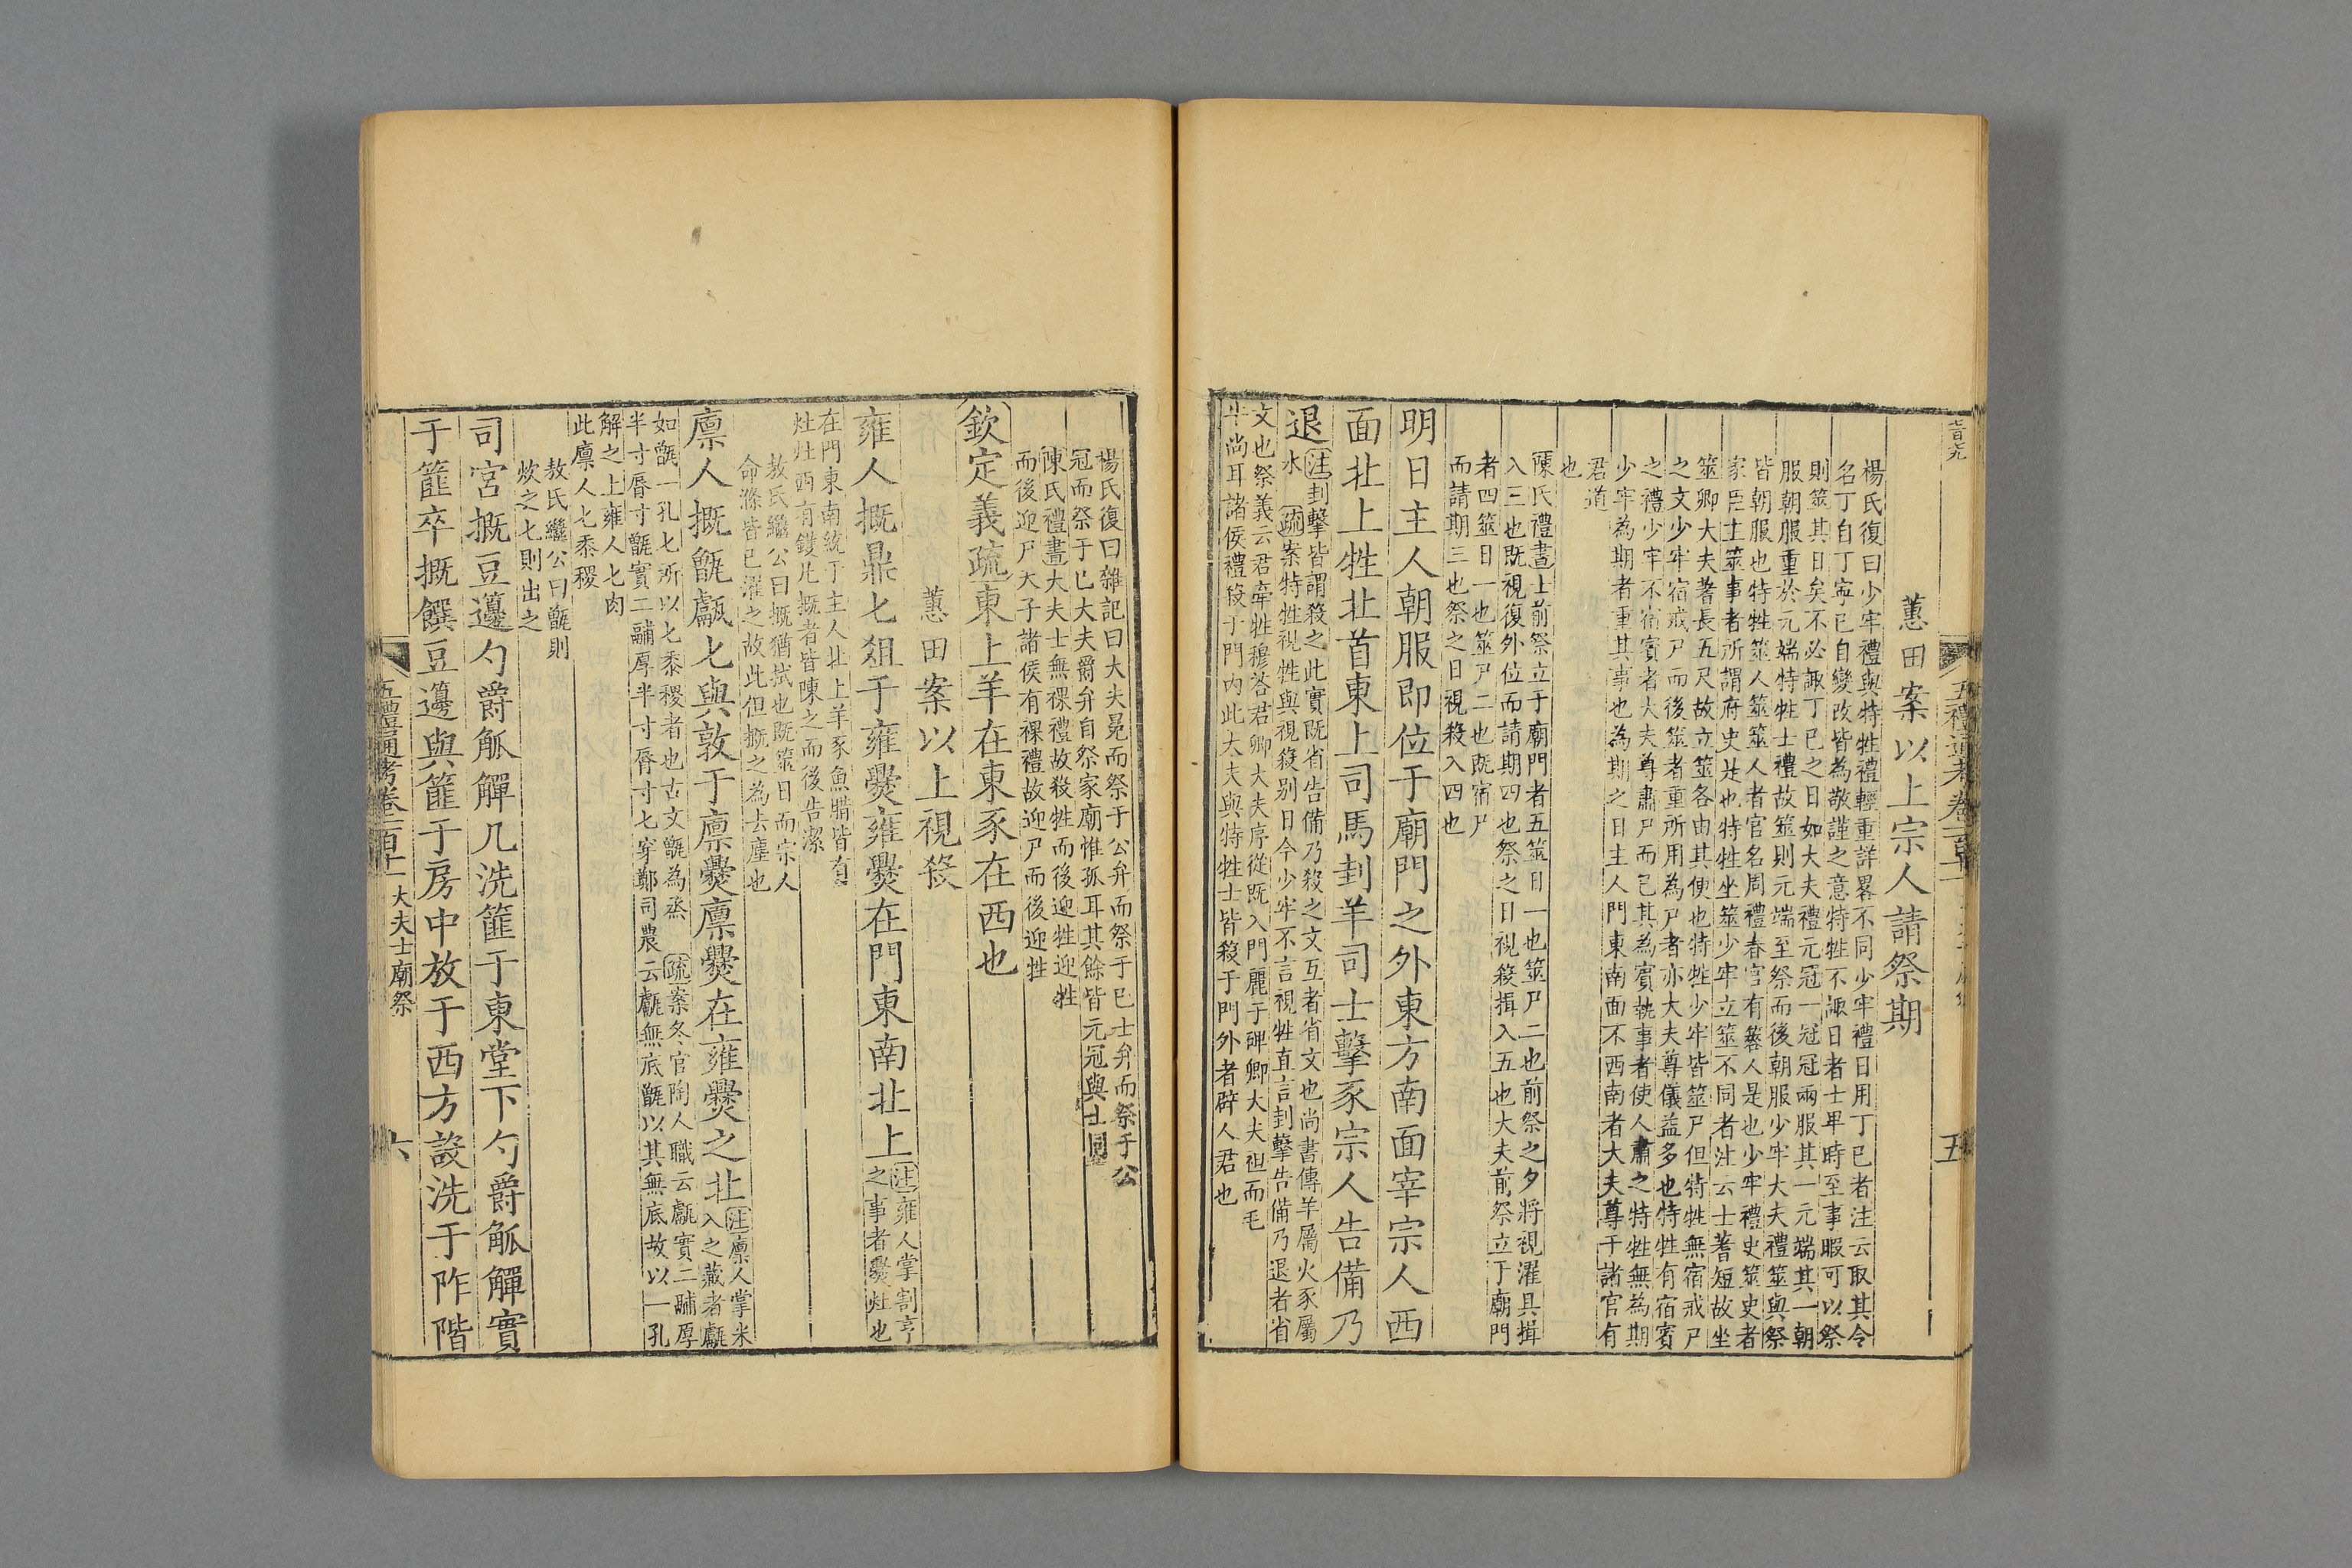 蕙田案以上宗人請祭期
楊氏復曰少牢禮與特牲禮輕重詳畧不同少牢禮日用丁己者注云取其令
名丁自丁寧己自變改皆為敬謹之意特牲不諏日者士卑時至事暇可以祭
則筮其日矣不必諏丁己之日如大夫禮元冠一冠冠兩服其一元端其一朝
服朝服重於元端特牲士禮故筮則元端至祭而後朝服少牢大夫禮筮與祭
皆朝服也特牲筮人筮筮人者官名周禮春官有簭人是也少牢禮史筮史者
家臣主筮事者所謂府史是也特牲坐筮少牢立筮不同者注云士蓍短故坐
筮卿大夫蓍長五尺故立筮各由其便也特牲少牢皆筮尸但特牲無宿戒尸
之文少牢宿戒尸而後筮者重所用為尸者亦大夫尊儀益多也特牲有宿賓
之禮少牢不宿賓者大夫尊肅尸而已其為賓執事者使人肅之特牲無為期
少牢為期者重其事也為期之日主人門東南面不西南者大夫尊于諸官有
君道
也
陳氏禮書士前祭立于廟門者五筮日一也筮尸二也前祭之夕將視濯具揖
入三也既視復外位而請期四也祭之日視殺揖入五也大夫前祭立于廟門
者四筮日一也筮尸二也既宿尸
而請期三也祭之日視殺入四也
明日主人朝服即位于廟門之外東方南面宰宗人西
面北上牲北首東上司馬刲羊司士擊豕宗人告備乃
退
注刲擊皆謂殺之此實既省告備乃殺之文互者省文也尚書傳羊屬火豕屬
水 疏案特牲視牲與視殺别日今少牢不言視牲直言刲擊告備乃退者省
文也祭義云君牽牲穆荅君卿大夫序從既入門麗于碑卿大夫袒而毛
牛尚耳諸侯禮殺于門內此大夫與特牲士皆殺于門外者辟人君也
五禮通考卷一百十一
五
楊氏復曰雜記曰大夫冕而祭于公弁而祭于己士弁而祭于公
冠而祭于己大夫爵弁自祭家廟惟孤耳其餘皆元冠與士同
陳氏禮書大夫士無祼禮故殺牲而後迎牲迎牲
而後迎尸大子諸侯有祼禮故迎尸而後迎牲
欽定義疏東上羊在東豕在西也
蕙田案以上視殺
雍人摡鼎匕俎于雍爨雍爨在門東南北上
注雍人掌割亨
之事者爨灶也
在門東南統于主人北上羊豕魚腊皆有
灶灶西有鑊凡摡者皆陳之而後告潔
敖氏繼公曰摡猶拭也既筮日而宗人
命滌皆已濯之故此但摡之為去塵也
廪人摡甑甗匕與敦于廪爨廪爨在雍爨之北
注廪人掌米
入之藏者甗
如甑一孔匕所以匕黍稷者也古文甑為烝 疏案冬官陶人職云甗實二鬴厚
半寸脣寸甑實二鬴厚半寸脣寸七穿鄭司農云甗無底甑以其無底故以一孔
解之上雍人匕肉
此廪人匕黍稷
敖氏繼公曰甑則
炊之匕則出之
司宮摡豆籩勺爵觚觶几洗篚于東堂下勺爵觚觶實
于篚卒摡饌豆籩與篚于房中放于西方設洗于阼階
五禮通考卷一百十一 大夫士廟祭
六